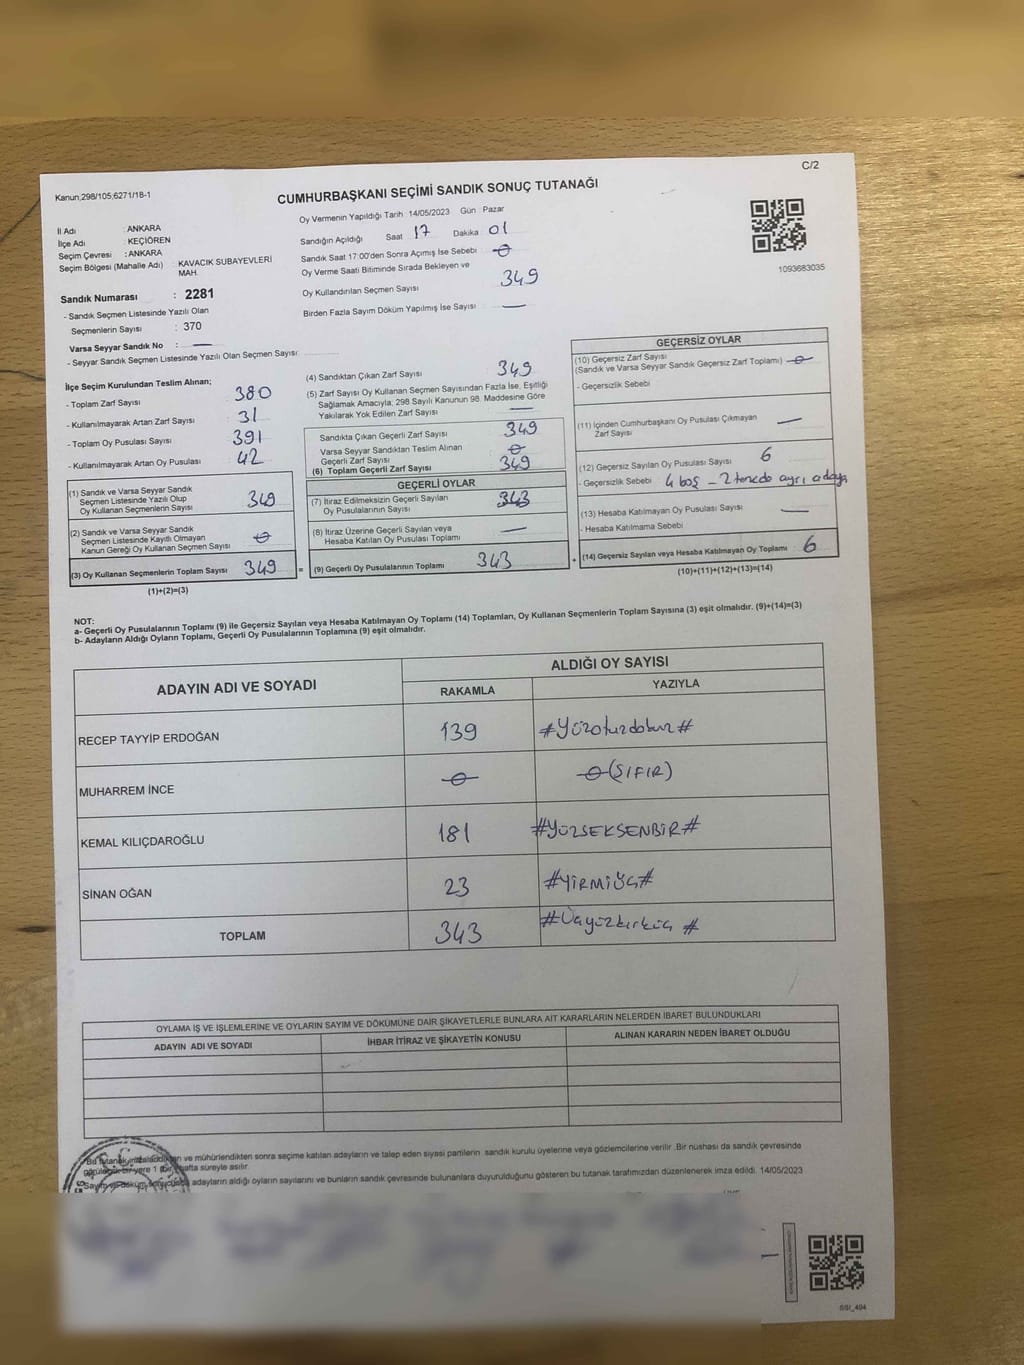 C/2
Kanun;298/105;6271/18-1
CUMHURBAŞKANI SEÇİMİ SANDIK SONUÇ TUTANAĞI
İl Adı : ANKARA
İlçe Adı : KEÇİÖREN
Seçim Çevresi : ANKARA
Seçim Bölgesi (Mahalle Adı) : KAVACIK SUBAYEVLERİ MAH.
Sandık Numarası : 2281
- Sandık Seçmen Listesinde Yazılı Olan
Seçmenlerin Sayısı : 370
Varsa Seyyar Sandık No : —
- Seyyar Sandık Seçmen Listesinde Yazılı Olan Seçmen Sayısı:
Oy Vermenin Yapıldığı Tarih 14/05/2023 Gün Pazar
Sandığın Açıldığı Saat 17 Dakika 01
Sandık Saat 17:00'den Sonra Açımış İse Sebebi 0
Oy Verme Saati Bitiminde Sırada Bekleyen ve
Oy Kullandırılan Seçmen Sayısı 349
Birden Fazla Sayım Döküm Yapılmış İse Sayısı —
1093683035
İlçe Seçim Kurulundan Teslim Alınan;
- Toplam Zarf Sayısı 380
- Kullanılmayarak Artan Zarf Sayısı 31
- Toplam Oy Pusulası Sayısı 391
- Kullanılmayarak Artan Oy Pusulası 42
(1) Sandık ve Varsa Seyyar Sandık
Seçmen Listesinde Yazılı Olup
Oy Kullanan Seçmenlerin Sayısı 349
(2) Sandık ve Varsa Seyyar Sandık
Seçmen Listesinde Kayıtlı Olmayan
Kanun Gereği Oy Kullanan Seçmen Sayısı 0
(3) Oy Kullanan Seçmenlerin Toplam Sayısı 349 =
(1)+(2)=(3)
(4) Sandıktan Çıkan Zarf Sayısı 349
(5) Zarf Sayısı Oy Kullanan Seçmen Sayısından Fazla İse, Eşitliği
Sağlamak Amacıyla; 298 Sayılı Kanunun 98. Maddesine Göre
Yakılarak Yok Edilen Zarf Sayısı —
Sandıkta Çıkan Geçerli Zarf Sayısı 349
Varsa Seyyar Sandıktan Teslim Alınan
Geçerli Zarf Sayısı 0
(6) Toplam Geçerli Zarf Sayısı 349
GEÇERLİ OYLAR
(7) İtiraz Edilmeksizin Geçerli Sayılan
Oy Pusulalarının Sayısı 343
(8) İtiraz Üzerine Geçerli Sayılan veya
Hesaba Katılan Oy Pusulası Toplamı —
(9) Geçerli Oy Pusulalarının Toplamı 343 +
GEÇERSİZ OYLAR
(10) Geçersiz Zarf Sayısı
(Sandık ve Varsa Seyyar Sandık Geçersiz Zarf Toplamı) 0
- Geçersizlik Sebebi
(11) İçinden Cumhurbaşkanı Oy Pusulası Çıkmayan
Zarf Sayısı —
(12) Geçersiz Sayılan Oy Pusulası Sayısı 6
- Geçersizlik Sebebi 4 boş - 2 tanede ayrı adaya
(13) Hesaba Katılmayan Oy Pusulası Sayısı —
- Hesaba Katılmama Sebebi
(14) Geçersiz Sayılan veya Hesaba Katılmayan Oy Toplamı 6
(10)+(11)+(12)+(13)=(14)
NOT:
a- Geçerli Oy Pusulalarının Toplamı (9) ile Geçersiz Sayılan veya Hesaba Katılmayan Oy Toplamı (14) Toplamları, Oy Kullanan Seçmenlerin Toplam Sayısına (3) eşit olmalıdır. (9)+(14)=(3)
b- Adayların Aldığı Oyların Toplamı, Geçerli Oy Pusulalarının Toplamına (9) eşit olmalıdır.
ADAYIN ADI VE SOYADI ALDIĞI OY SAYISI
RAKAMLA YAZIYLA
RECEP TAYYİP ERDOĞAN 139 #Yüzotuzdokuz#
MUHARREM İNCE 0 0(SIFIR)
KEMAL KILIÇDAROĞLU 181 #YÜZSEKSENBİR#
SİNAN OĞAN 23 #YİRMİÜÇ#
TOPLAM 343 #Üçyüzkırküç #
OYLAMA İŞ VE İŞLEMLERİNE VE OYLARIN SAYIM VE DÖKÜMÜNE DAİR ŞİKAYETLERLE BUNLARA AİT KARARLARIN NELERDEN İBARET BULUNDUKLARI
ADAYIN ADI VE SOYADI İHBAR İTİRAZ VE ŞİKAYETİN KONUSU ALINAN KARARIN NEDEN İBARET OLDUĞU
Bu tutanak ve mühürlendikten sonra seçime katılan adayların ve talep eden siyasi partilerin sandık kurulu üyelerine veya gözlemcilerine verilir. Bir nüshası da sandık çevresinde
bir yere 1 (bir) hafta süreyle asılır.
adayların aldığı oyların sayılarını ve bunların sandık çevresinde bulunanlara duyurulduğunu gösteren bu tutanak tarafımızdan düzenlenerek imza edildi. 14/05/2023
SSI_494